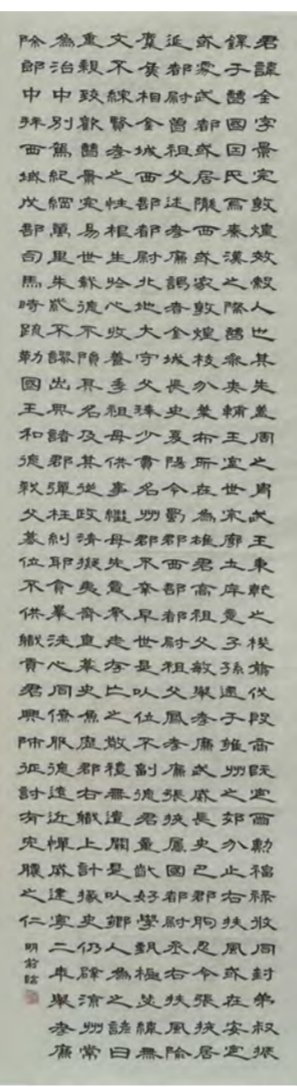 君諱全字景完敦煌效穀人也其先蓋周之冑武王秉乾之機翦伐殷商既定爾勳福祿攸同封弟叔振
鐸于曹國因氏焉秦漢之際曹參夾輔王室世宗廓土斥竟子孫遷于雍州之郊分止右扶風或在安定
或處武都或居隴西或家敦煌枝分葉布所在為雄君高祖父敏舉孝廉武威長史巴郡朐忍令張掖居
延都尉曾祖父述孝廉謁者金城長史夏陽令蜀郡西部都尉祖父鳳孝廉張掖屬國都尉丞右扶風隃
麋侯相金城西部都尉北地大守父琫少貫名州郡不幸早世是以位不副德君童齔好學甄極毖緯無
文不綜賢孝之性根生於心收養季祖母供事繼母先意承志存亡之敬禮無遺闕是以鄉人為之諺曰
重親致歡曹景完易世載德不隕其名及其從政清擬夷齊直慕史魚歷郡右職上計掾史仍辟涼州常
為治中別駕紀綱萬里朱紫不謬出典諸郡彈枉糾邪貪暴洗心同僚服德遠近憚威建寧二年舉孝廉
除郎中拜西域戊部司馬時疏勒國王和德弒父篡位不供職貢君興師征討有兖膿之仁